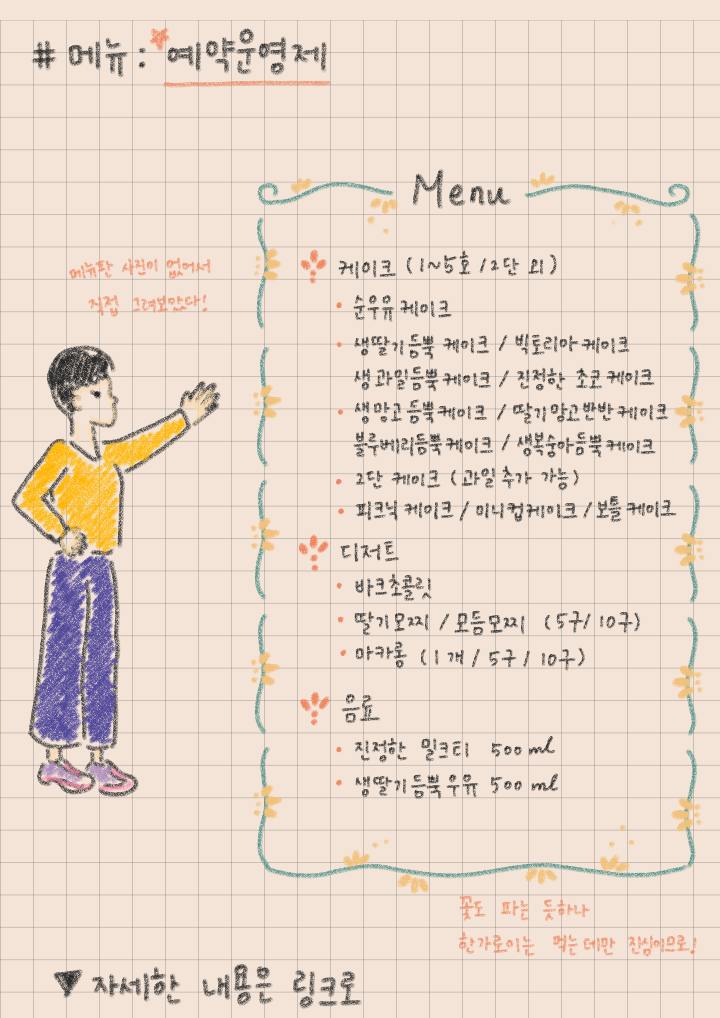 # 메뉴 : 예약운영제
Menu
메뉴판 사진이 없어서
직접 그려보았다!
케이크 (1~5호 / 2단 외)
순우유 케이크
생딸기듬뿍 케이크 / 빅토리아 케이크
생과일듬뿍 케이크 / 진정한 초코 케이크
생망고듬뿍케이크 / 딸기망고반반케이크
블루베리듬뿍케이크 / 생복숭아듬뿍케이크
2단 케이크 (과일추가 가능)
피크닉 케이크 / 미니컵케이크 / 보틀 케이크
디저트
바크초콜릿
딸기모찌 / 모듬모찌 (5구/ 10구)
마카롱 (1개 / 5구 / 10구)
음료
진정한 밀크티 500ml
생딸기듬뿍우유 500ml
꽃도 파는 듯하나
한가로이는 먹는데만 진심이므로!
▼ 자세한 내용은 링크로